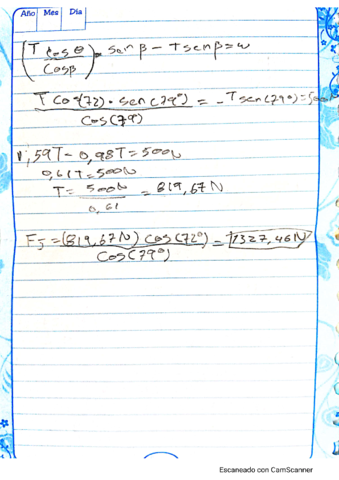 Año Mes Dia
(T cosθ / cosβ) · senβ - Tsenβ = w
T cos(72) · sen(79°) / cos(79°) = -Tsen(79°) = 500N
1,59T - 0,98T = 500N
0,61T = 500N
T = 500N / 0,61 = 819,67N
FJ = (819,67N) cos(72°) / cos(79°) = 1327,46N
Escaneado con CamScanner